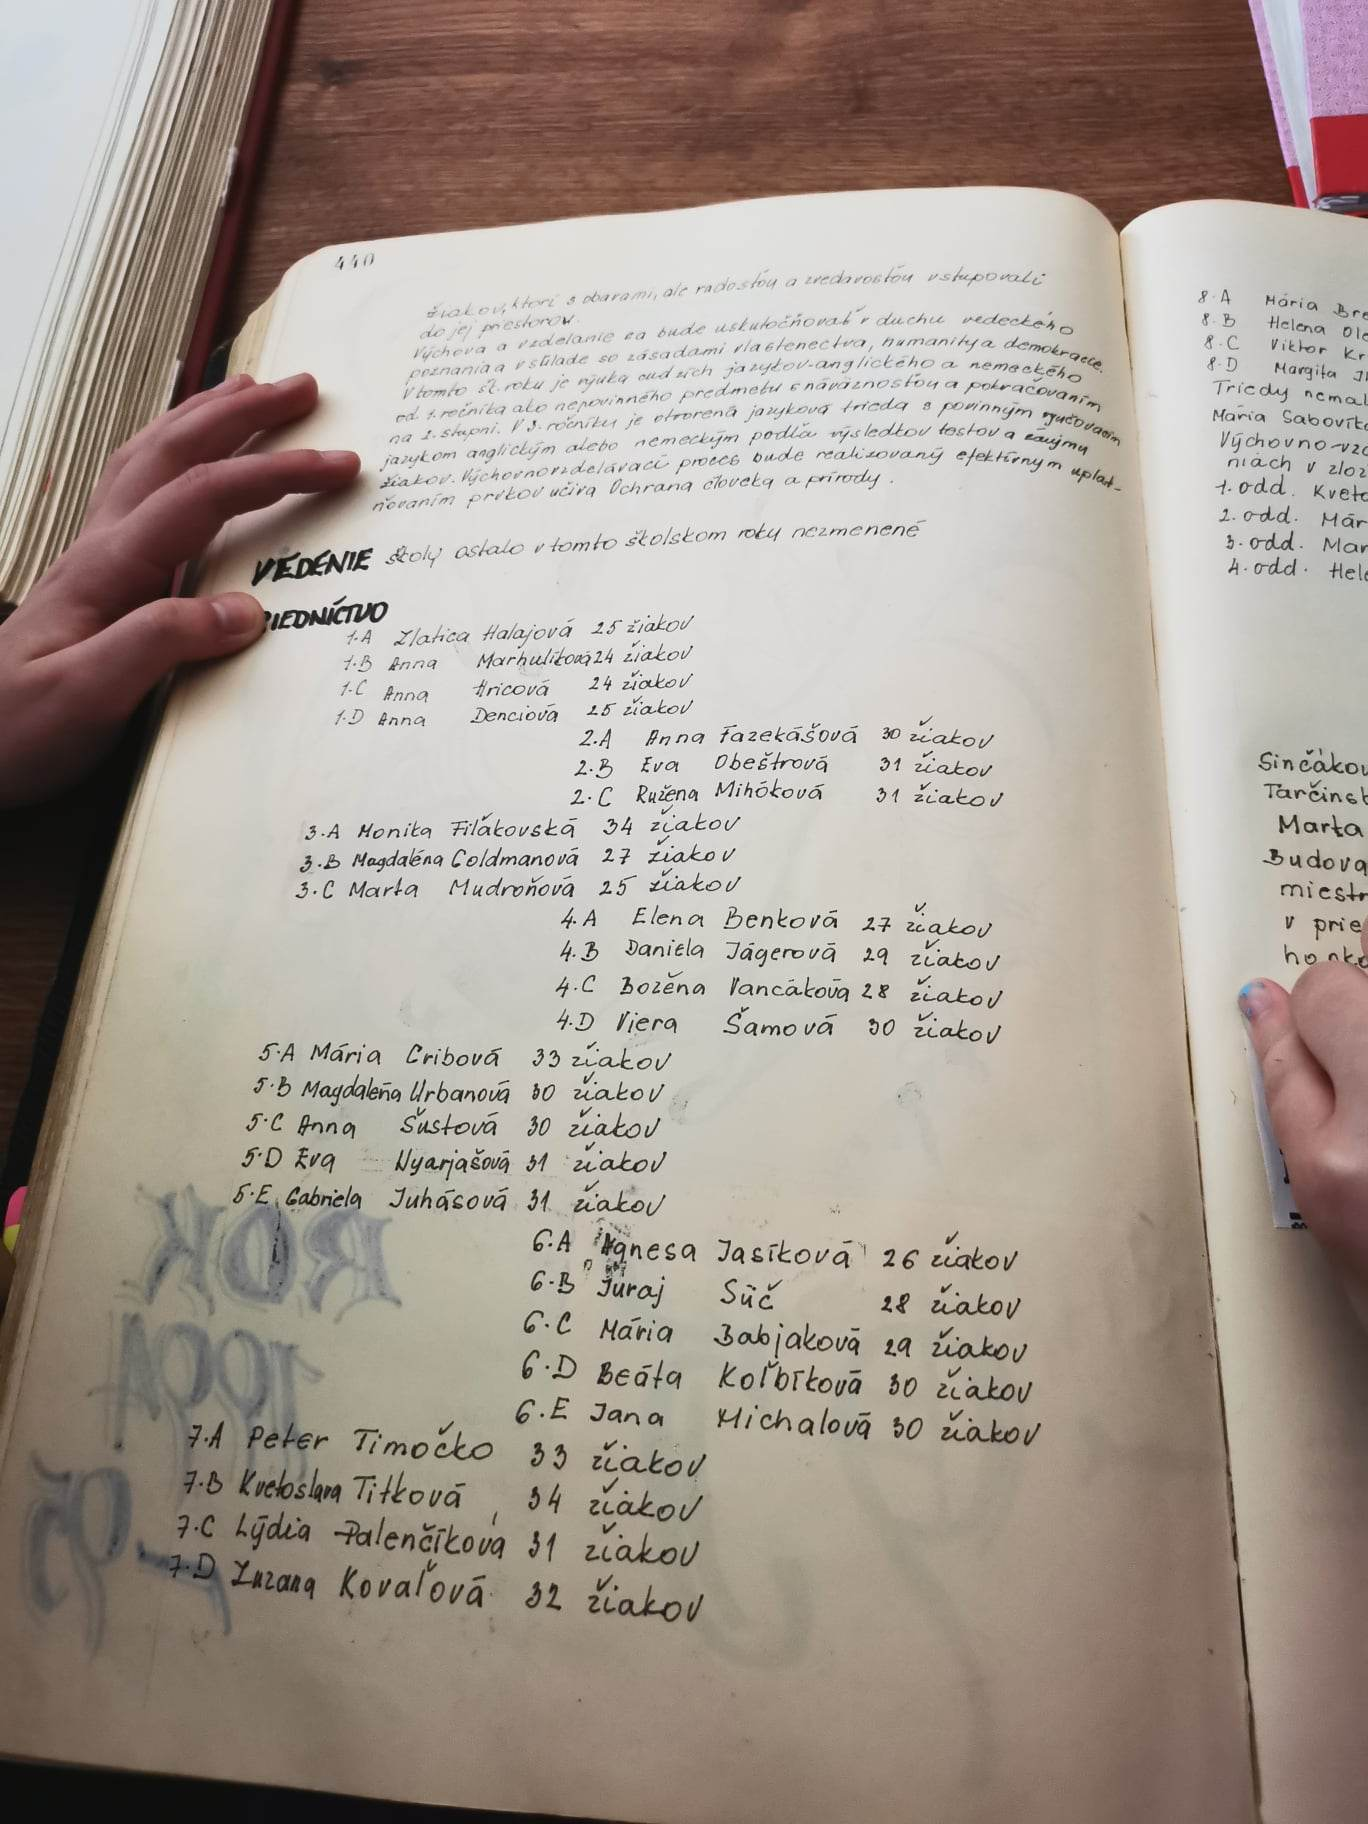 440
žiakov, ktorí s obavami, ale radosťou a zvedavosťou vstupovali
do jej priestorov.
Výchova a vzdelanie sa bude uskutočňovať v duchu vedeckého
poznania a v súlade so zásadami vlastenectva, humanity a demokracie.
V tomto šk. roku je výuka cudzích jazykov-anglického a nemeckého
od 1. ročníka ako nepovinného predmetu s náväznosťou a pokračovaním
na 2. stupni. V 3. ročníku je otvorená jazyková trieda s povinným vyučovacím
jazykom anglickým alebo nemeckým podľa výsledkov testov a záujmu
žiakov. Výchovnovzdelávací proces bude realizovaný efektívnym uplat-
ňovaním prvkov učiva Ochrana človeka a prírody.
VEDENIE školy ostalo v tomto školskom roku nezmenené
RIEDNÍCTVO
1.A Zlatica Halajová 25 žiakov
1.B Anna Marhulíková 24 žiakov
1.C Anna Hricová 24 žiakov
1.D Anna Denciová 25 žiakov
2.A Anna Fazekášová 30 žiakov
2.B Eva Obeštrová 31 žiakov
2.C Ružena Mihóková 31 žiakov
3.A Monika Fiľakovská 34 žiakov
3.B Magdaléna Goldmanová 27 žiakov
3.C Marta Mudroňová 25 žiakov
4.A Elena Benková 27 žiakov
4.B Daniela Jágerová 29 žiakov
4.C Božena Vancáková 28 žiakov
4.D Viera Šamová 30 žiakov
5.A Mária Gribová 33 žiakov
5.B Magdaléna Urbanová 30 žiakov
5.C Anna Šustová 30 žiakov
5.D Eva Nyarjašová 31 žiakov
5.E Gabriela Juhásová 31 žiakov
6.A Agnesa Jasíková 26 žiakov
6.B Juraj Süč 28 žiakov
6.C Mária Babjaková 29 žiakov
6.D Beáta Koľbíková 30 žiakov
6.E Jana Michalová 30 žiakov
7.A Peter Timočko 33 žiakov
7.B Kvetoslava Titková 34 žiakov
7.C Lýdia Palenčíková 31 žiakov
7.D Zuzana Kovaľová 32 žiakov
8.A Mária Bre
8.B Helena Ole
8.C Viktor Kr
8.D Margita
Triedy nemal
Mária Sabovík
Výchovno-vzd
niach v zlož
1. odd. Kveto
2. odd. Már
3. odd. Mar
4. odd. Hele
Sinčákov
Tarčinsk
Marta
Budova
miestn
v prie